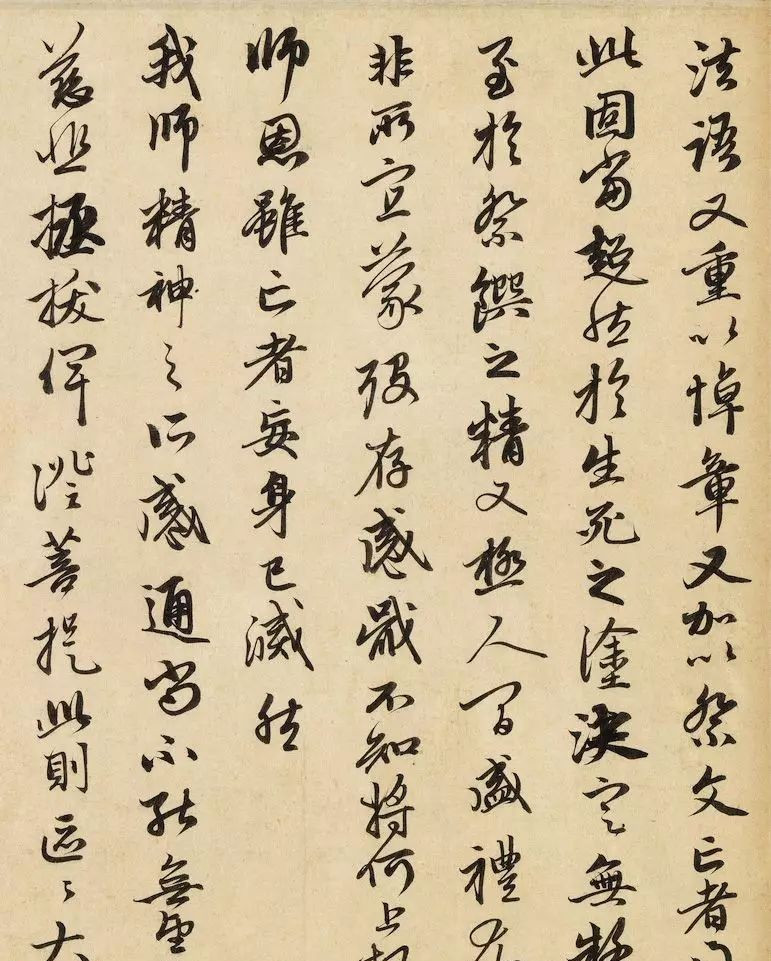 法語又重以悼章又加以祭文亡者
此固當超然於生死之塗決定無
至於祭饌之精又極人間盛禮尤
非所宜蒙歿存感戴不知將何上報
師恩雖亡者妄身已滅然
我師精神之所感通尚不能無望
慈悲拯拔俾證菩提此則區々大